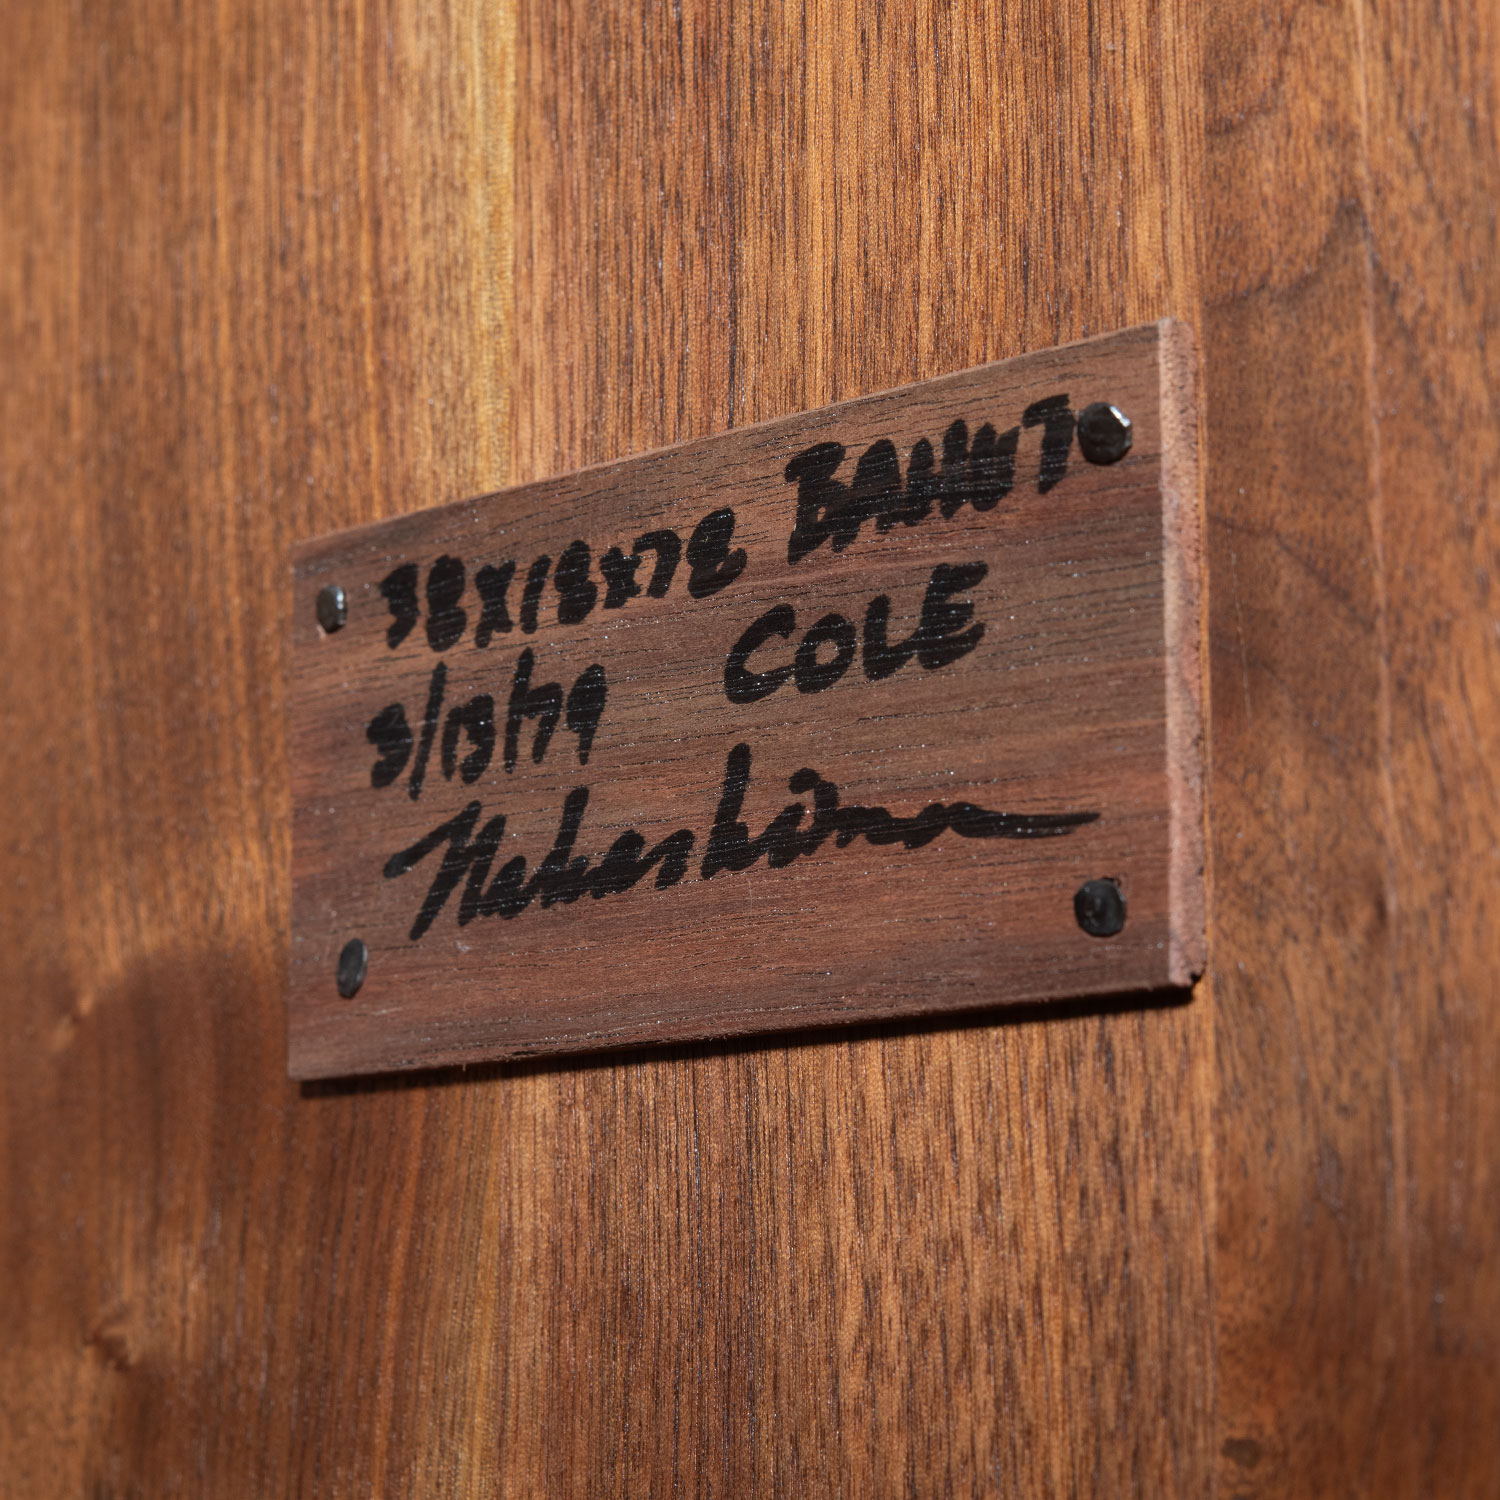 38X18X78 BAWUT
8/13/79 COLE
Nakashima